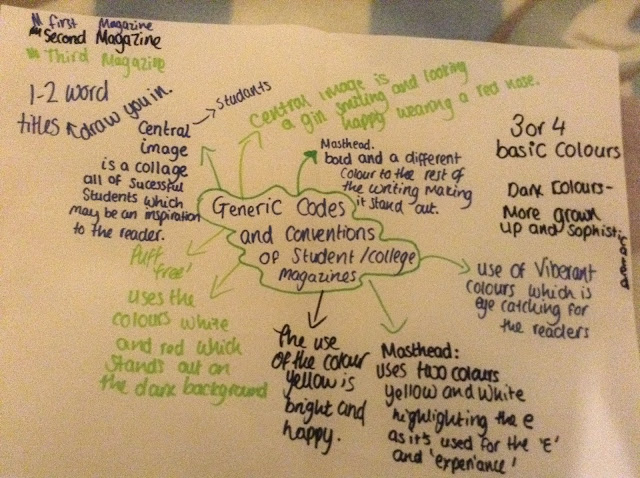 First Magazine
Second Magazine
Third Magazine
1-2 word
titles
draw you in.
Students
Central
image
is a collage
all of Sucessful
Students which
may be an inspiration
to the reader.
Central image is
a girl smiling and looking
happy wearing a red nose.
Masthead.
bold and a different
Colour to the rest of
the writing making
it stand out.
3 or 4
basic Colours
Dark Colours-
More grown
up and Sophist
Generic Codes
and Conventions
of Student/college
Magazines
Puff
'free'
uses the
colours white
and red which
Stands out on
the dark background
The use
of the colour
yellow is
bright and
happy.
Masthead:
uses two colours
yellow and white
highlighting the e
as it's used for the 'E'
and 'experiance'
use of Viberant
colours which is
eye catching for
the readers